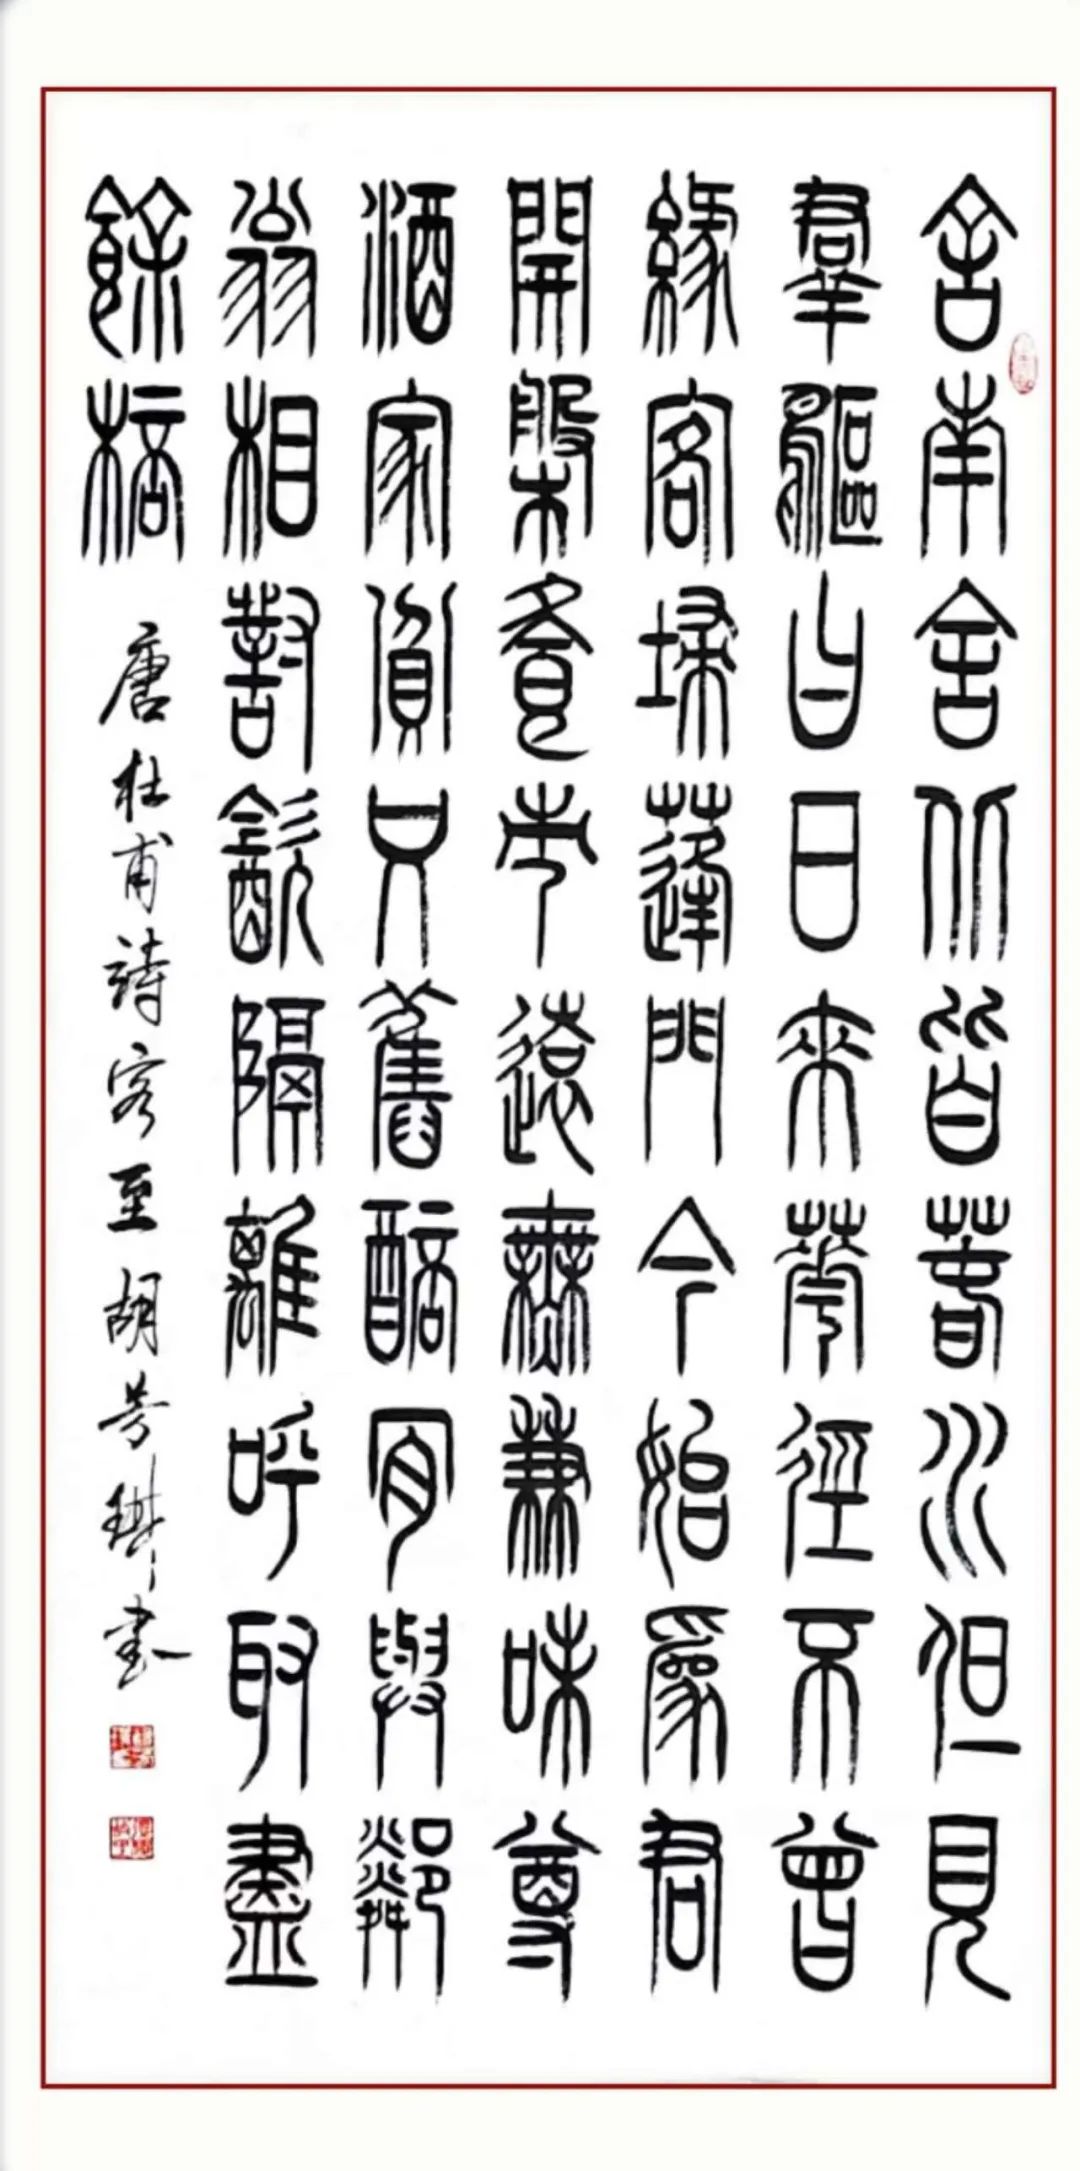 舍南舍北皆春水但見
羣鷗日日來花徑不曾
緣客埽蓬門今始爲君
開槃飧市遠無兼味尊
酒家貧只舊醅肯與鄰
翁相對飲隔離呼取盡
餘桮
唐杜甫詩客至胡芳琪書